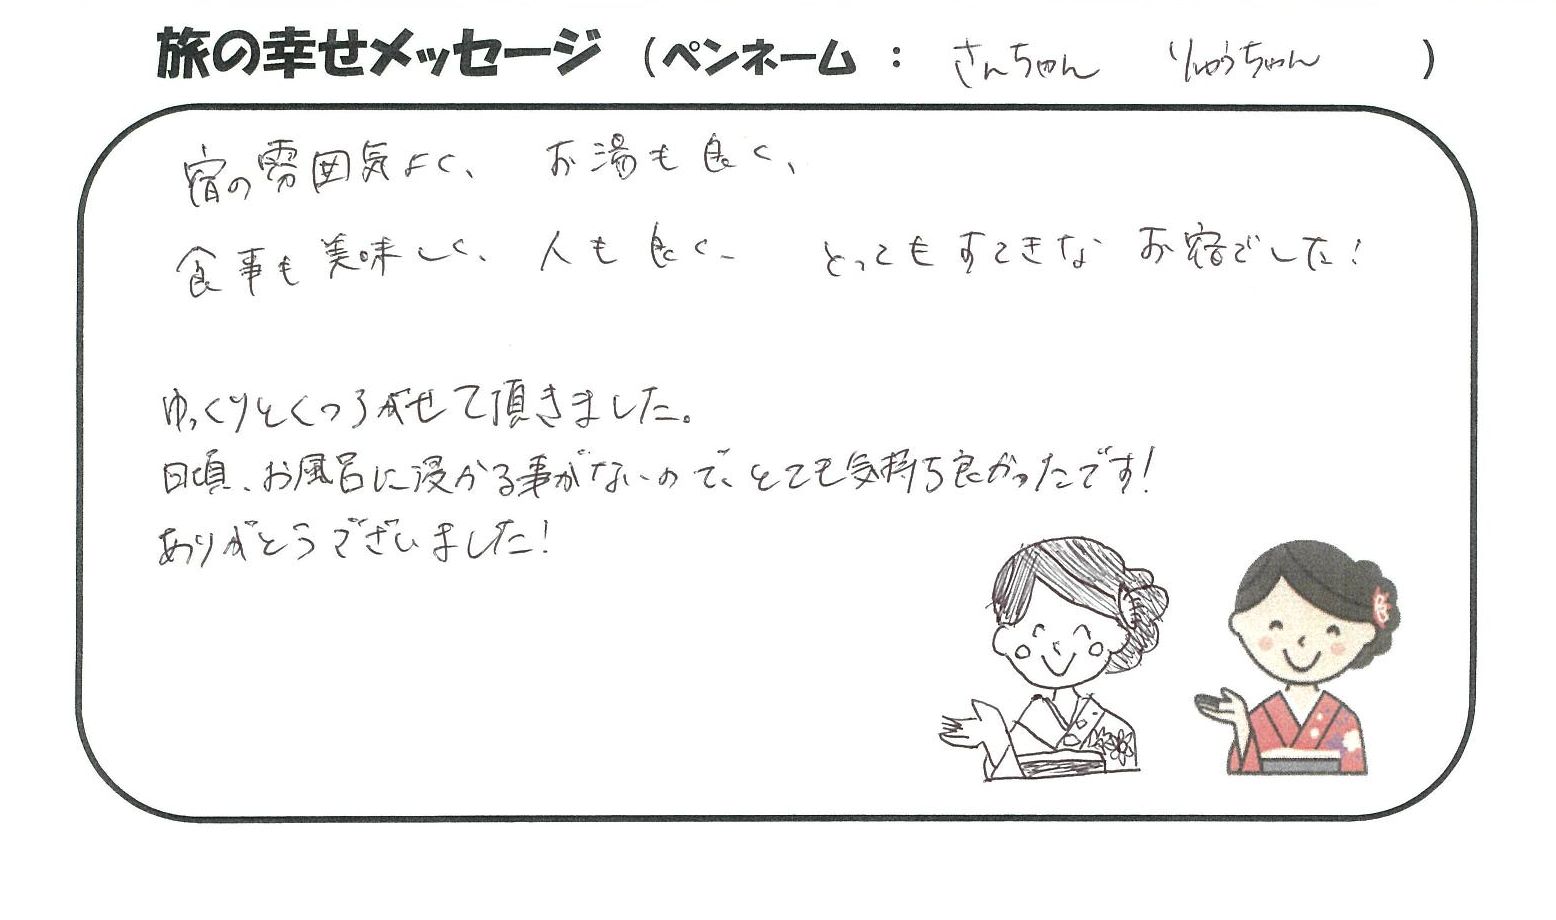 旅の幸せメッセージ（ペンネーム ： さんちゃん りゅうちゃん ）
宿の雰囲気よく、 お湯も良く、
食事も美味しく、人も良く、 とってもすてきな お宿でした！
ゆっくりとくつろがせて頂きました。
日頃、お風呂に浸かる事がないので、とても気持ち良かったです！
ありがとうございました！